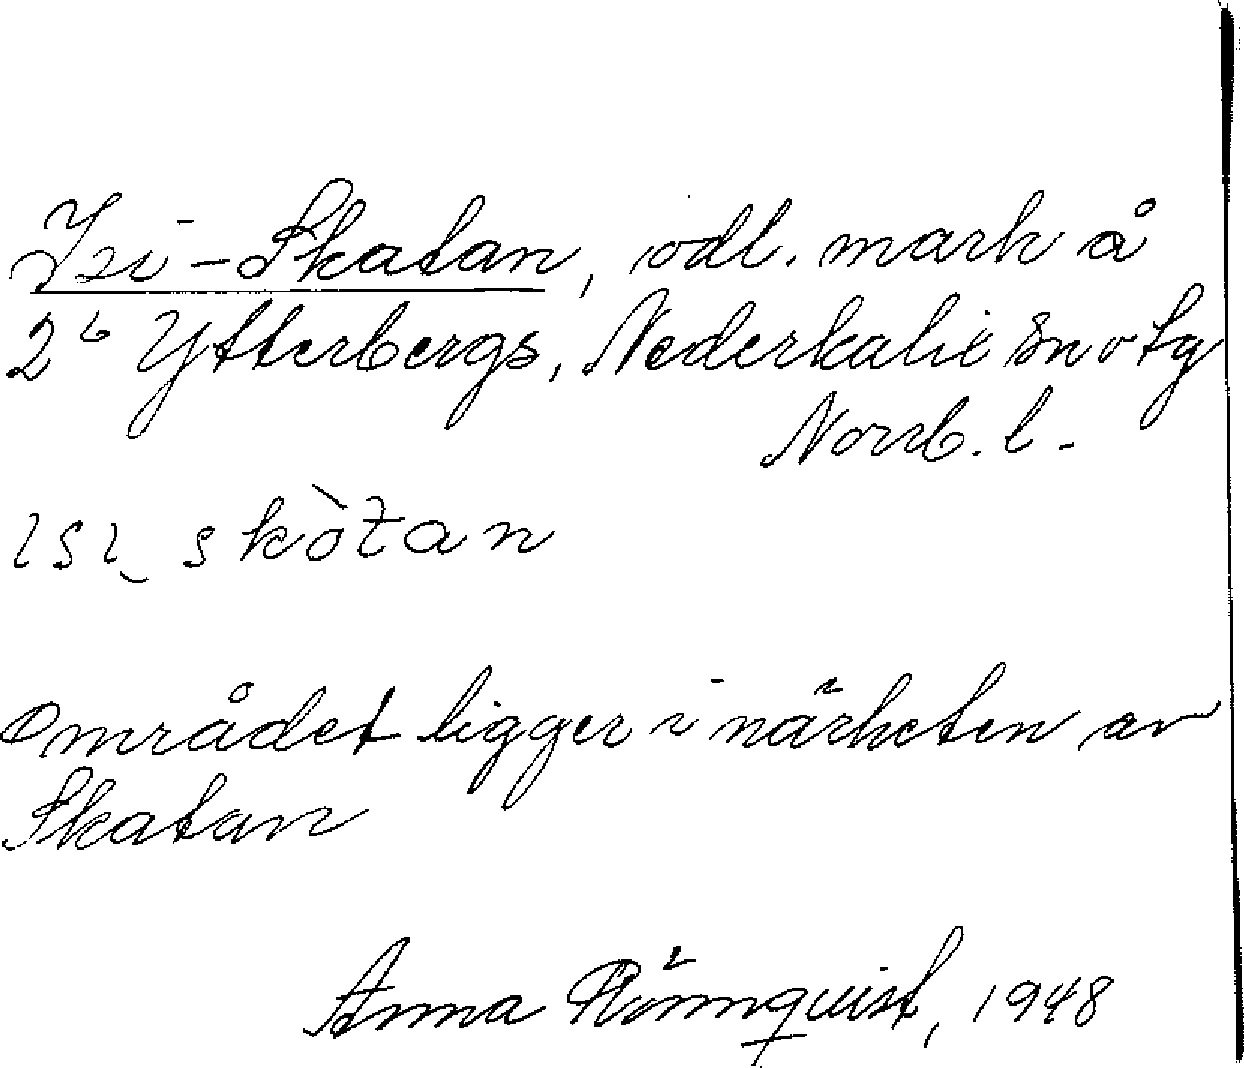 Isi-Skatan, odl. mark å
2⁶ Ytterbergs, Nederkalix sn o tg
Norrb. l.
ısı skòtan
Området ligger i närheten av
Skatan
Anna Rönnquist, 1948